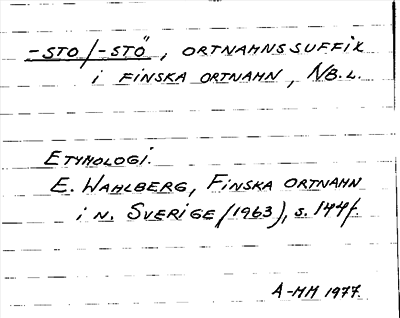 -STO/-STÖ, ORTNAMNSSUFFIX
i FINSKA ORTNAMN, NB.L.
ETYMOLOGI.
E. WAHLBERG, FINSKA ORTNAMN
i N. SVERIGE (1963), s. 144f.
A-MM 1977.